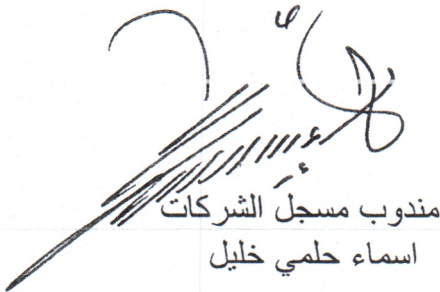 مندوب مسجل الشركات
اسماء حلمي خليل